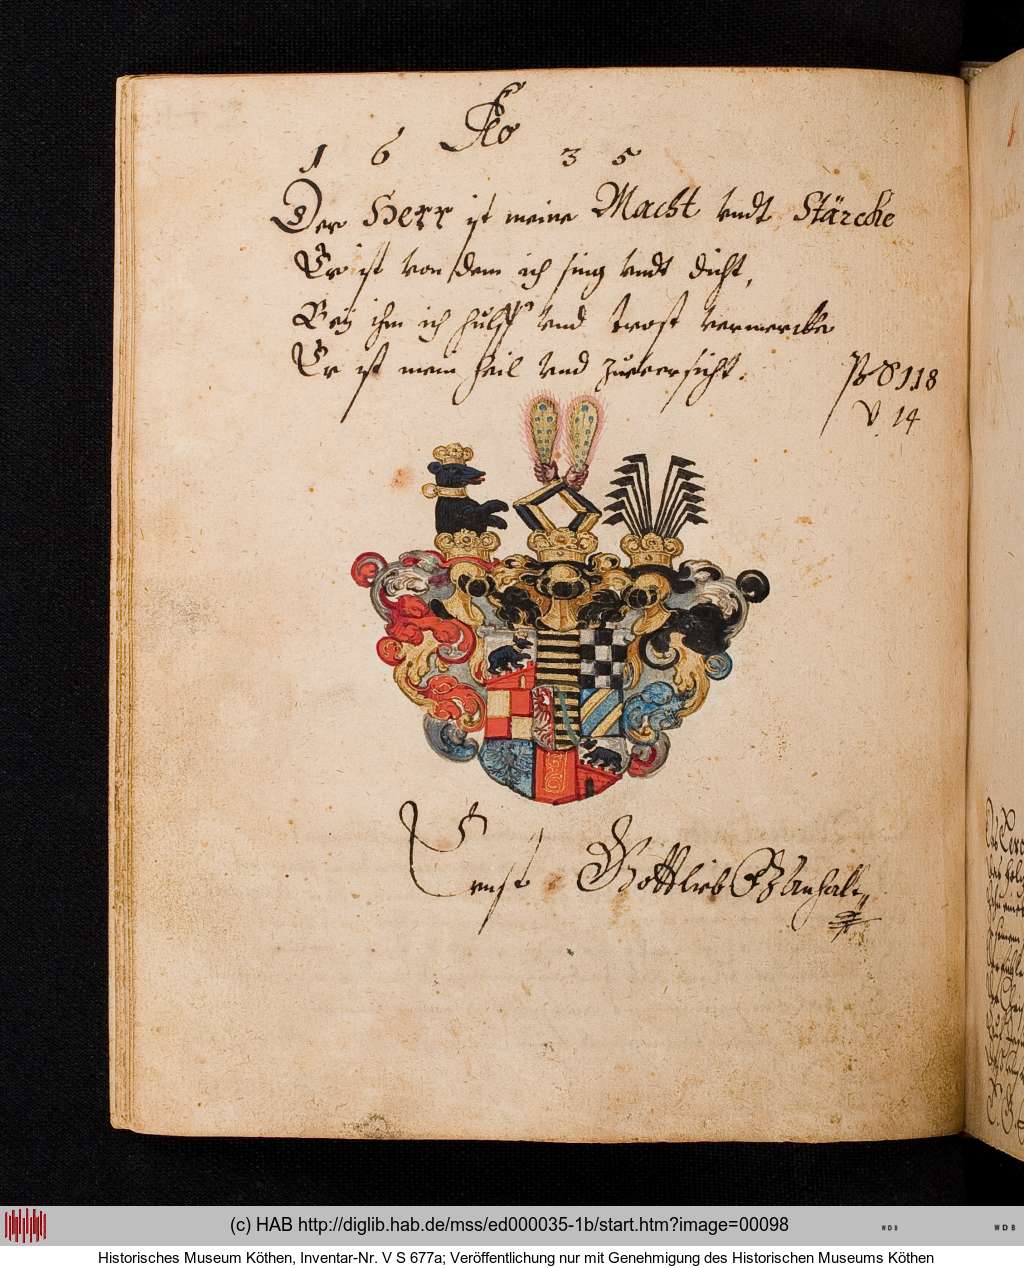 Ao
16 35
Der Herr ist meine Macht vndt Stärcke
Er ist von dem ich sing vndt dicht,
Bey ihm ich hülff vnd trost vermercke
Er ist mein heil vnd zuuersicht.
Ps 118
V. 14
Ernst Gottlieb F Z Anhalt
(c) HAB http://diglib.hab.de/mss/ed000035-1b/start.htm?image=00098
WDB
WDB
Historisches Museum Köthen, Inventar-Nr. V S 677a; Veröffentlichung nur mit Genehmigung des Historischen Museums Köthen